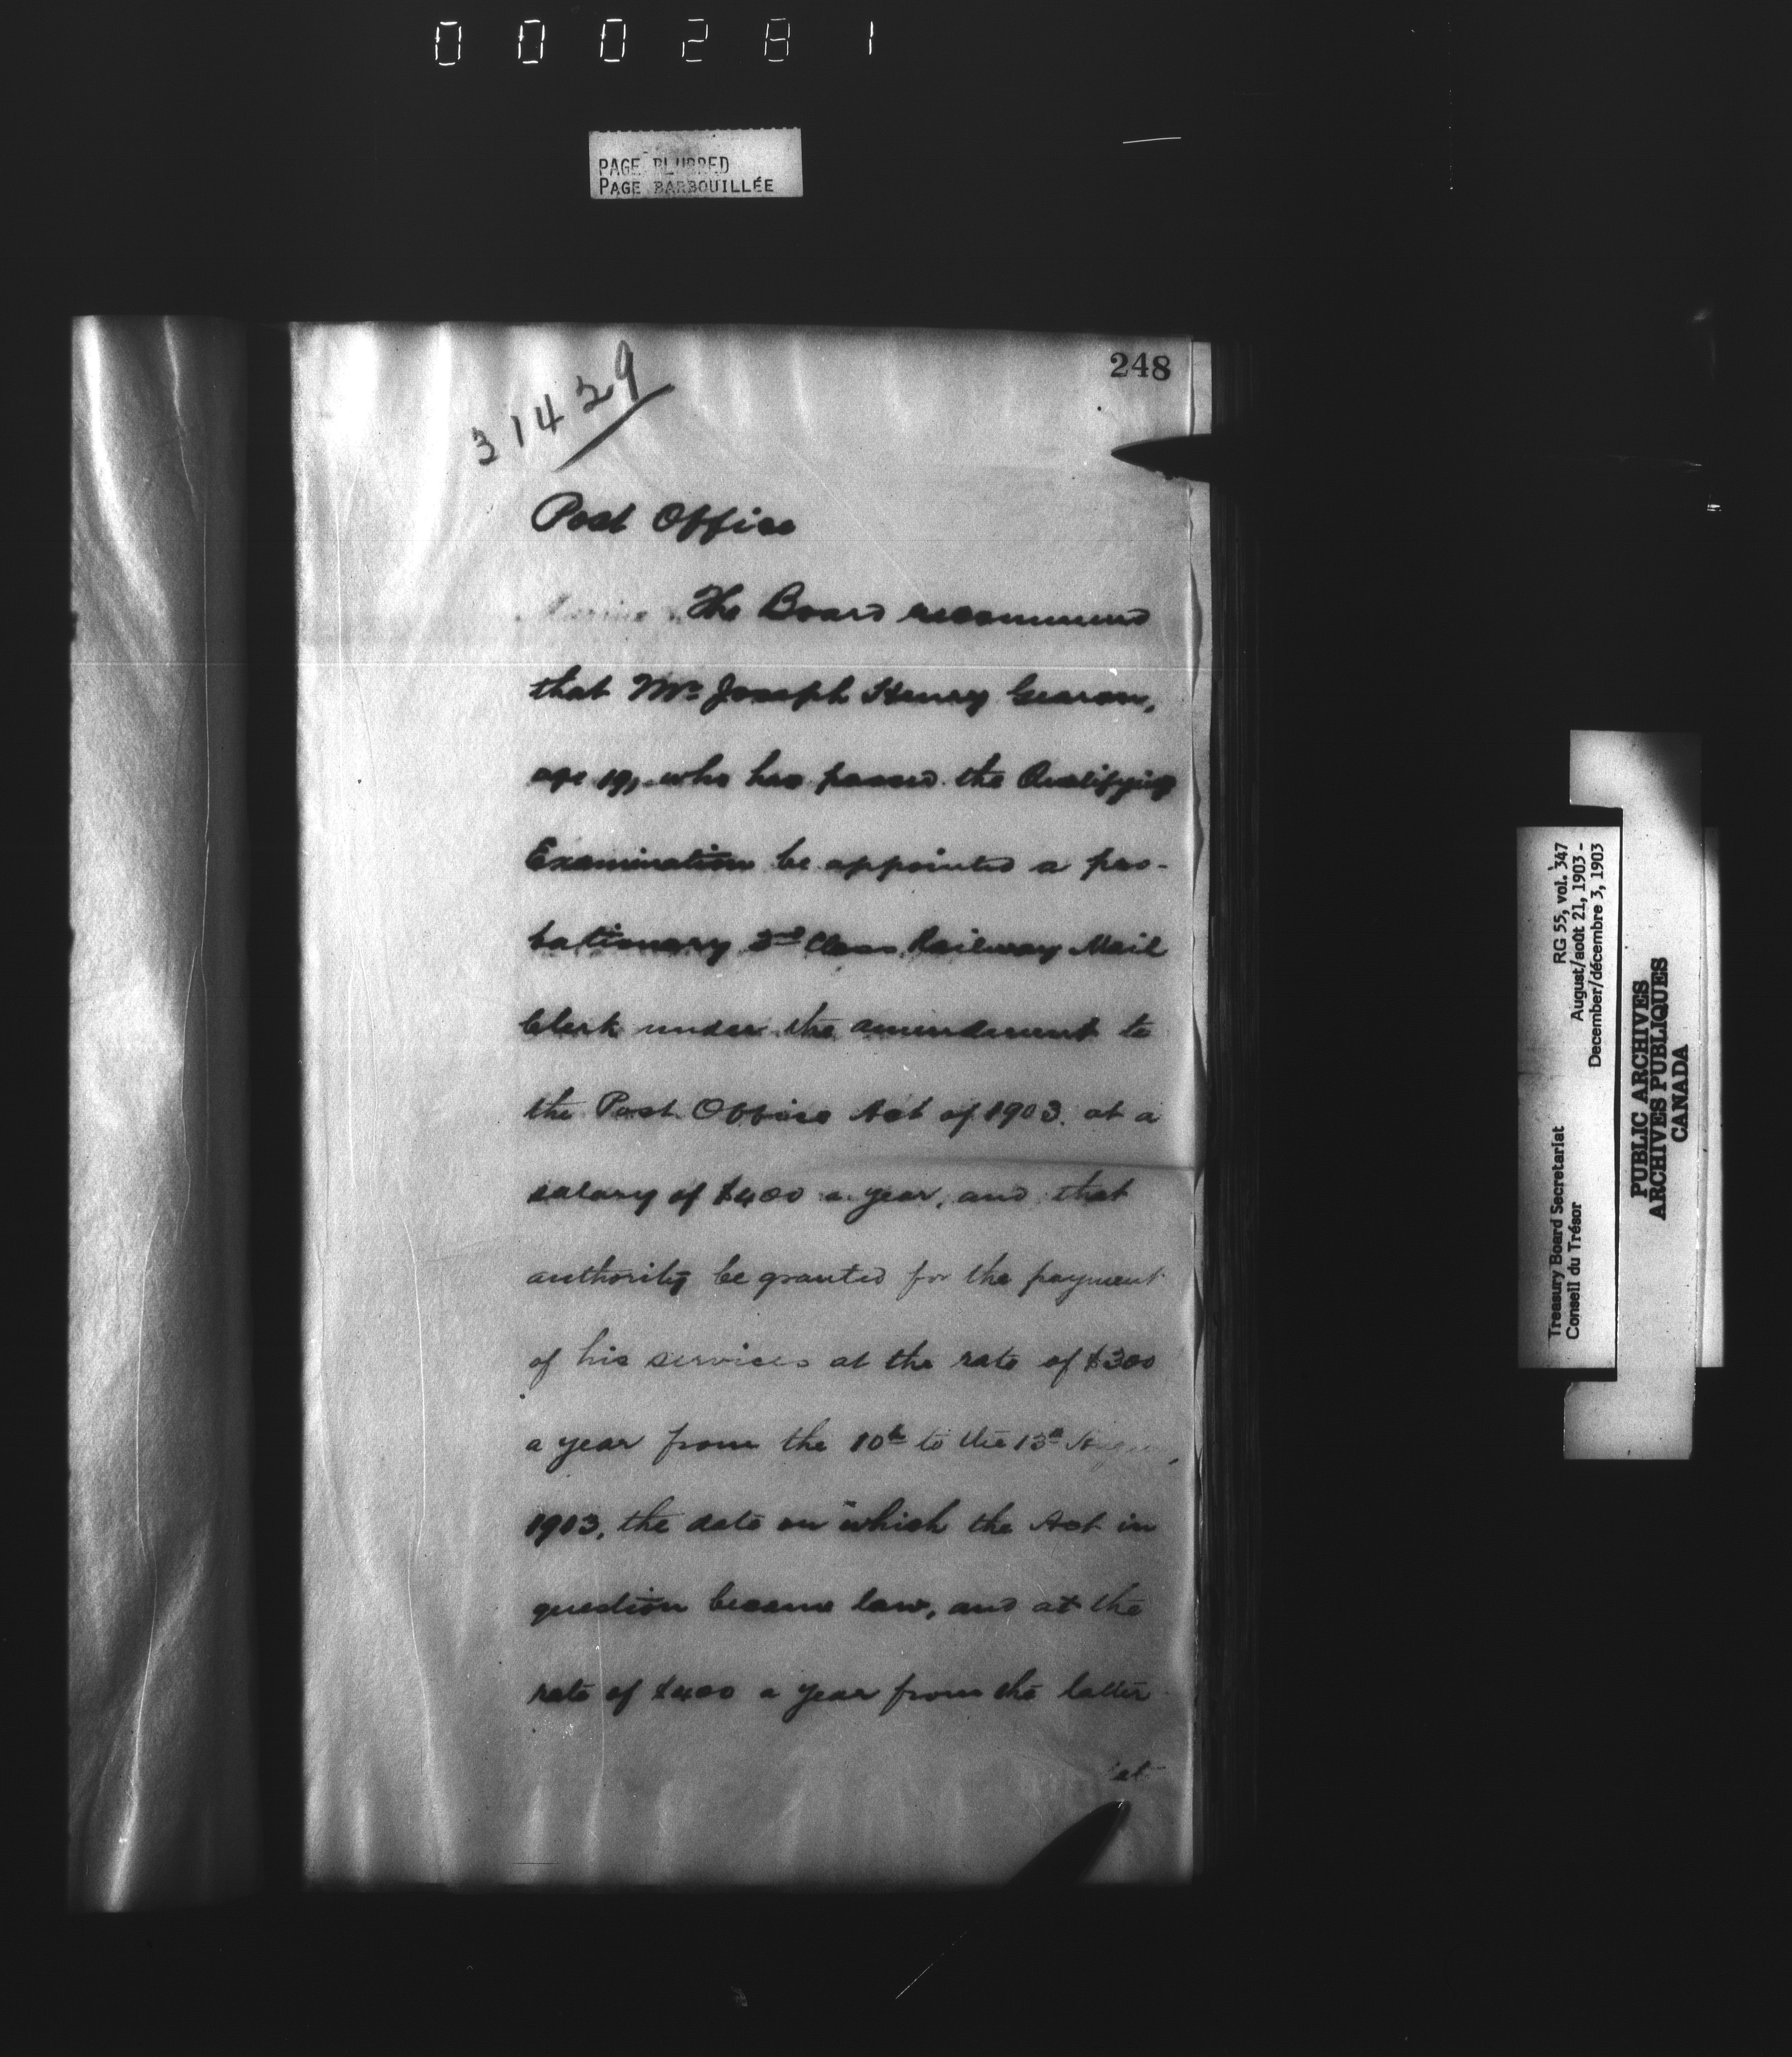 000281
PAGE BLURRED
PAGE BARBOUILLÉE
248
31429
Post Office
The Board recommend
that Mr. Joseph Henry Gearon,
age 19, who has passed the Qualifying
Examination be appointed a pro-
bationary 3rd Class Railway Mail
Clerk under the amendment to
the Post Office Act of 1903. at a
salary of $400 a year, and that
authority be granted for the payment
of his services at the rate of $300
a year from the 10th to the 13th
1903, the date on which the Act in
question became law, and at the
rate of $400 a year from the latter
Treasury Board Secretariat RG 55, vol. 347
Conseil du Trésor August/août 21, 1903 -
December/décembre 3, 1903
PUBLIC ARCHIVES
ARCHIVES PUBLIQUES
CANADA